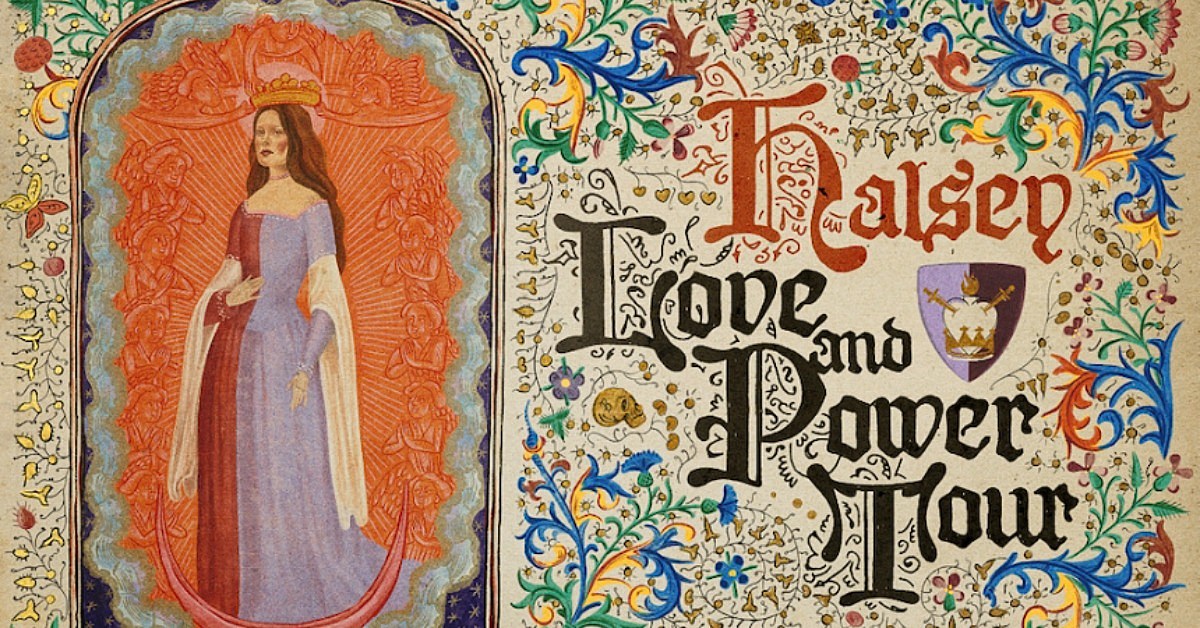 Halsey
Love
and
Power
Tour